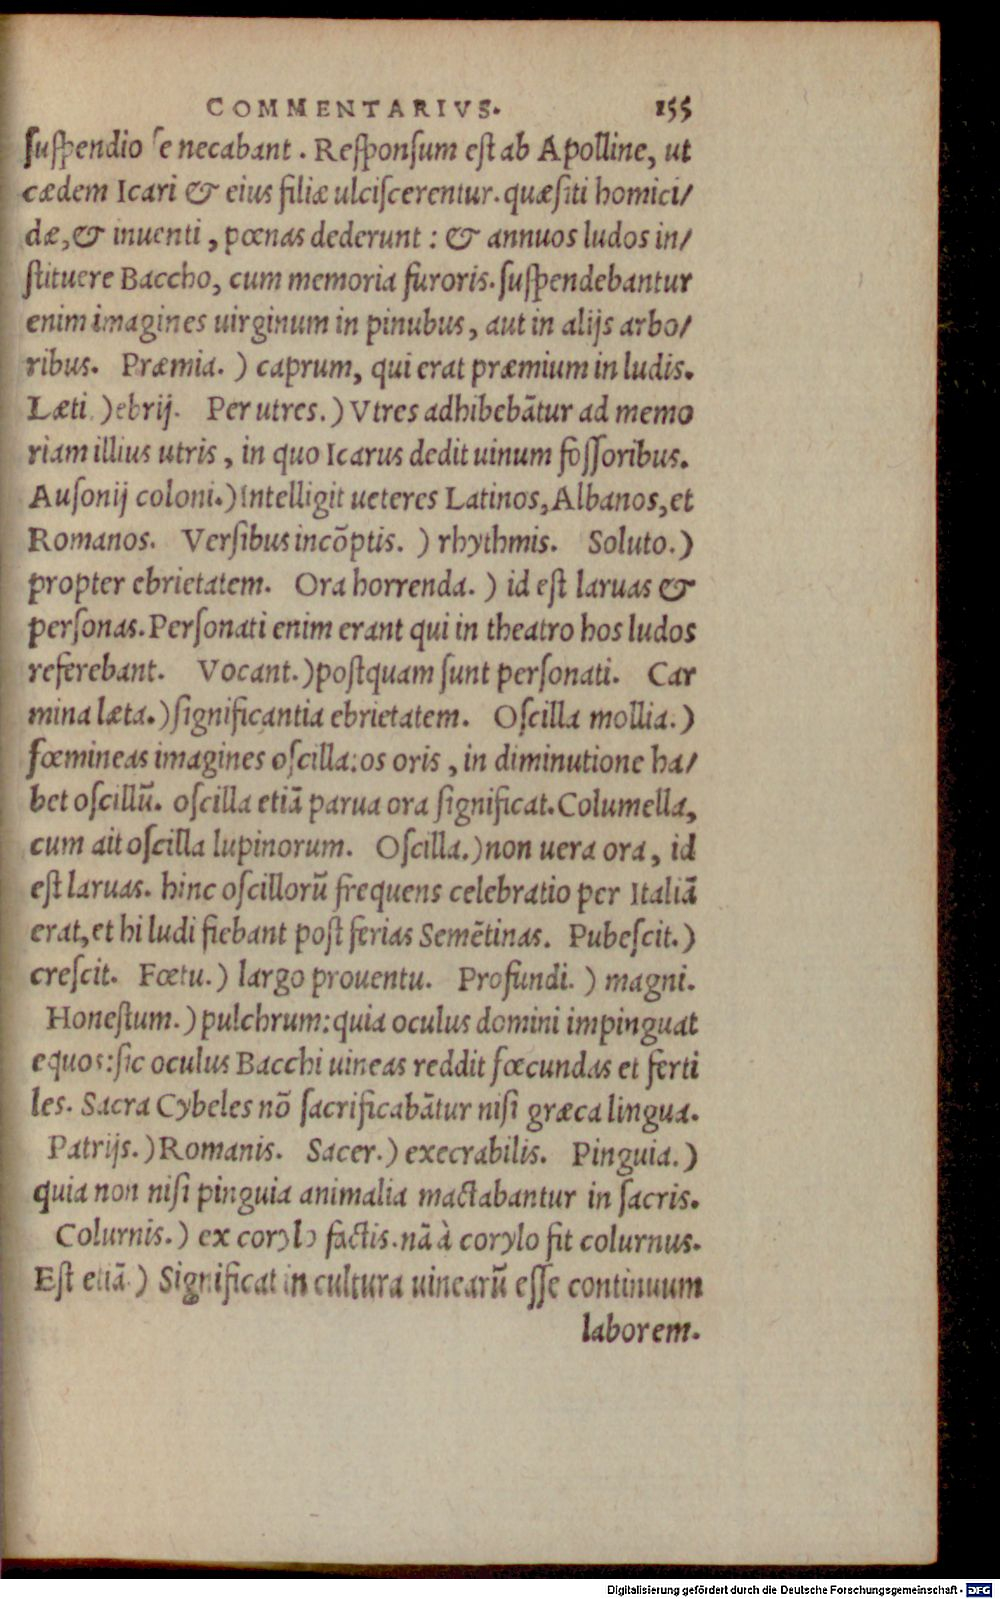 COMMENTARIVS. 155
ſuſpendio ſe necabant. Reſponſum eſt ab Apolline, ut
cædem Icari & eius filiæ ulciſcerentur. quæſiti homici/
dæ, & inuenti, pœnas dederunt: & annuos ludos in/
ſtituere Baccho, cum memoria furoris. ſuſpendebantur
enim imagines uirginum in pinubus, aut in alijs arbo/
ribus. Præmia.) caprum, qui erat præmium in ludis.
Læti.) ebrij. Per utres.) Vtres adhibebātur ad memo
riam illius utris, in quo Icarus dedit uinum foſſoribus.
Auſonij coloni.) Intelligit ueteres Latinos, Albanos, et
Romanos. Verſibus incōptis.) rhythmis. Soluto.)
propter ebrietatem. Ora horrenda.) id eſt laruas &
perſonas. Perſonati enim erant qui in theatro hos ludos
referebant. Vocant.) poſtquam ſunt perſonati. Car
mina læta.) ſignificantia ebrietatem. Oſcilla mollia.)
fœmineas imagines oſcilla: os oris, in diminutione ha/
bet oſcillū. oſcilla etiā parua ora ſignificat. Columella,
cum ait oſcilla lupinorum. Oſcilla.) non uera ora, id
eſt laruas. hinc oſcillorū frequens celebratio per Italiā
erat, et hi ludi fiebant poſt ferias Semētinas. Pubeſcit.)
creſcit. Fœtu.) largo prouentu. Profundi.) magni.
Honeſtum.) pulchrum: quia oculus domini impinguat
equos: ſic oculus Bacchi uineas reddit fœcundas et ferti
les. Sacra Cybeles nō ſacrificabātur niſi græca lingua.
Patrijs.) Romanis. Sacer.) execrabilis. Pinguia.)
quia non niſi pinguia animalia mactabantur in ſacris.
Colurnis.) ex corylo factis. nā à corylo fit colurnus.
Eſt etiā.) Significat in cultura uinearū eſſe continuum
laborem.
Digitalisierung gefördert durch die Deutsche Forschungsgemeinschaft - DFG